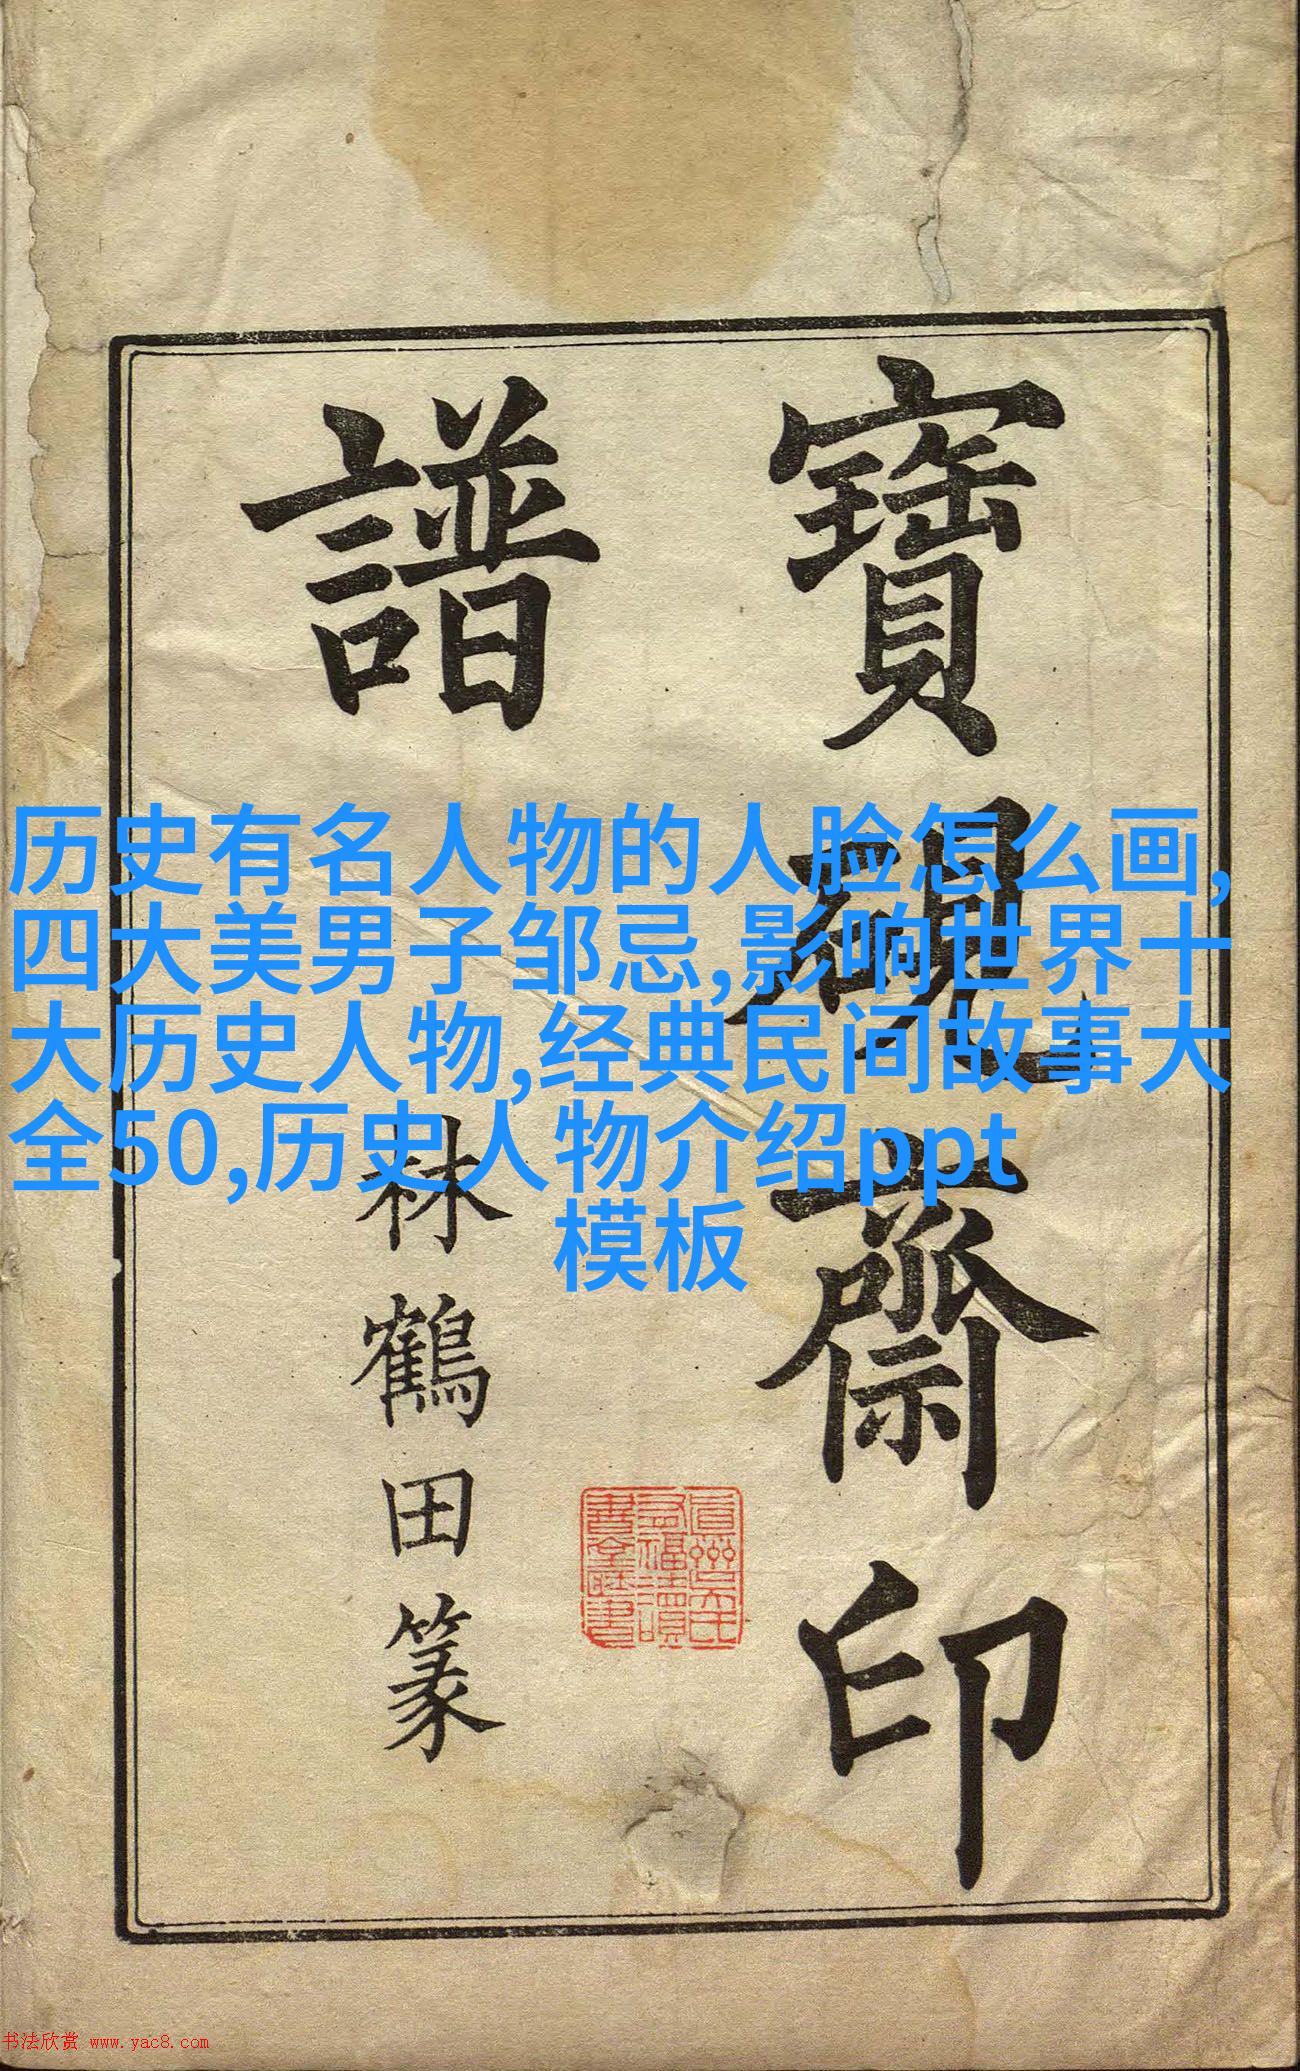 寶硯齋印
譜
林鶴田篆
眞州吳氏
有福讀
書堂藏書
历史有名人物的人脸怎么画,
四大美男子邹忌,影响世界十
大历史人物,经典民间故事大
全50,历史人物介绍ppt
模板
书法欣赏 www.yac8.com